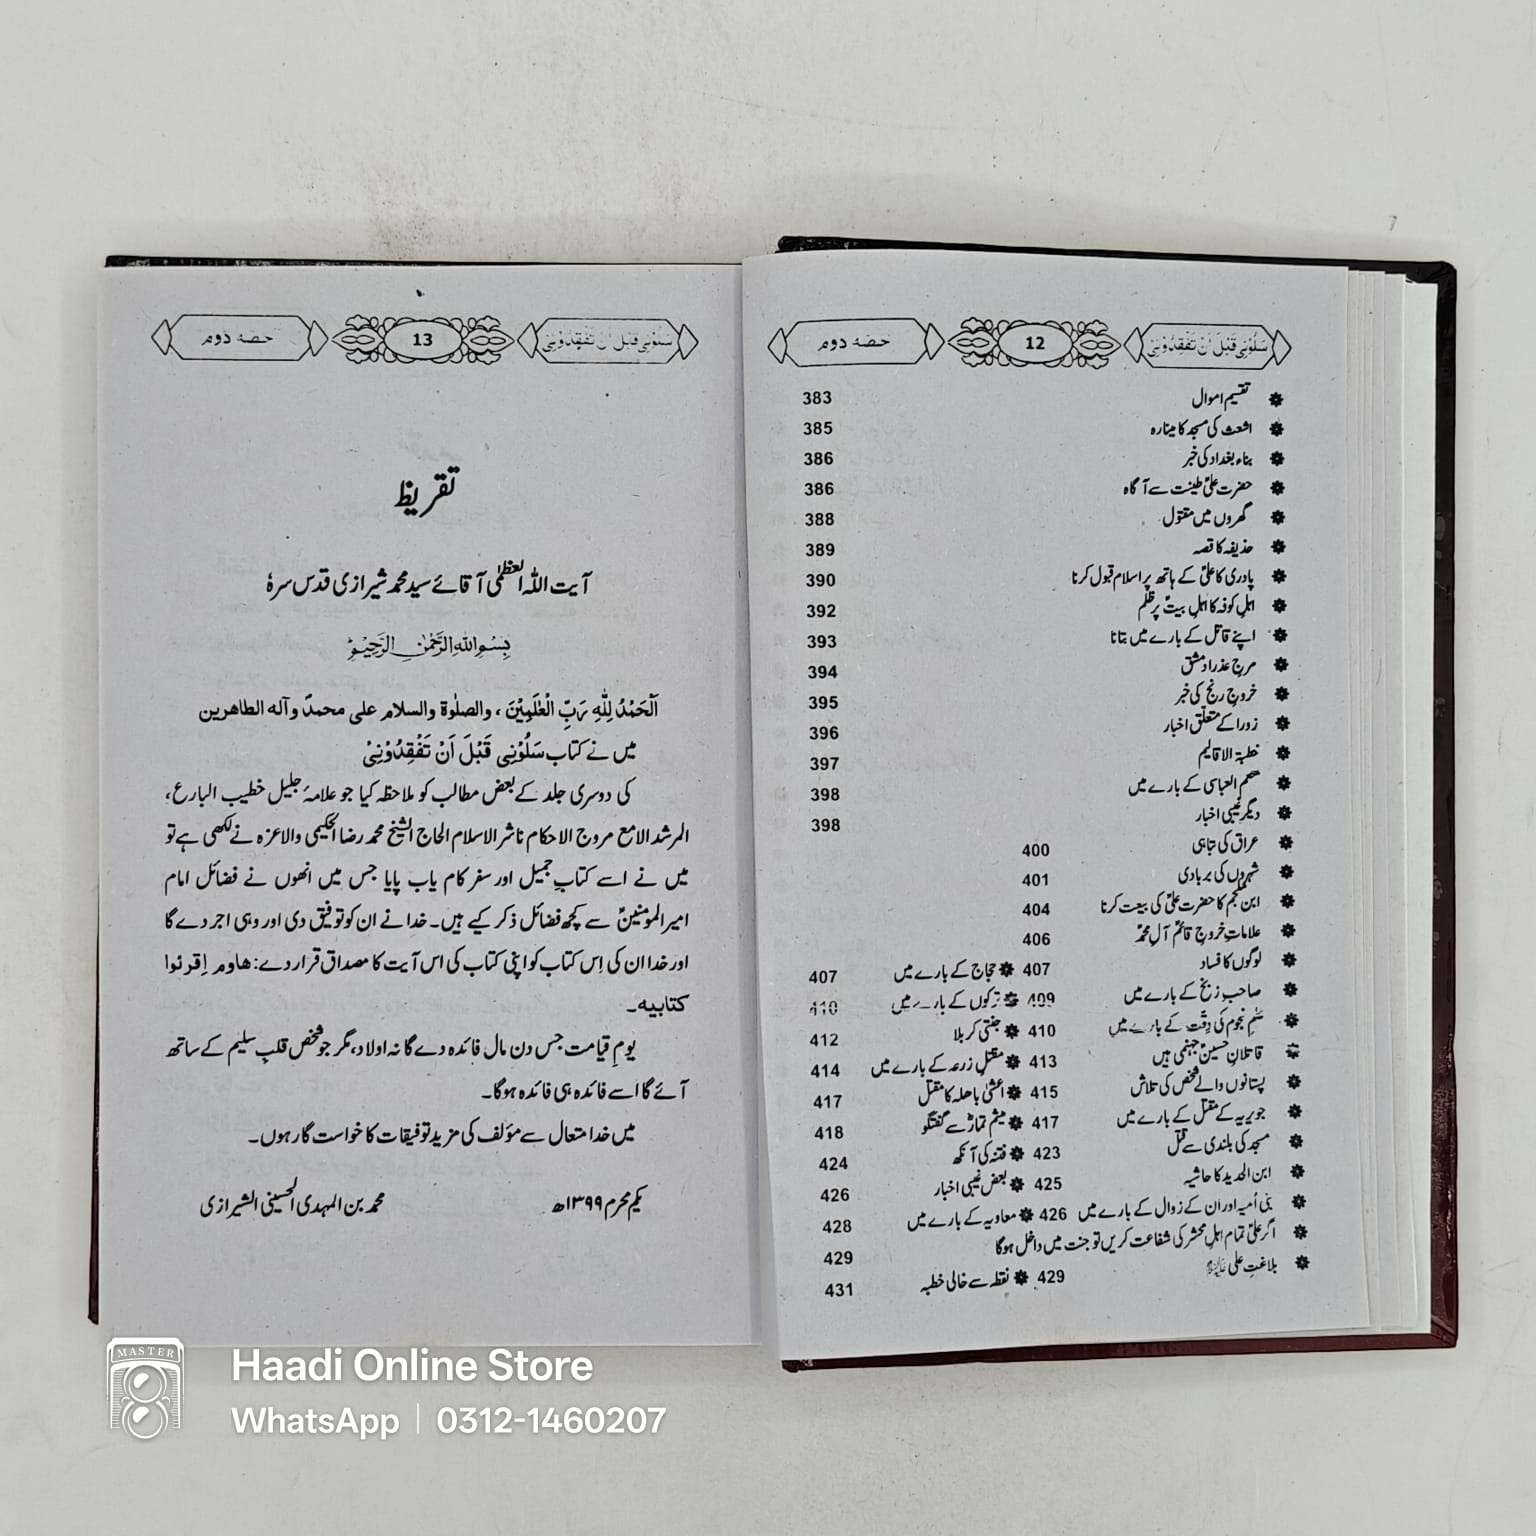 سَلُوْنِی قَبْلَ اَنْ تَفْقِدُوْنِیْ 12 حصہ دوم
تقسیم اموال 383
اشعث کی مسجد کا مینارہ 385
بناء بغداد کی خبر 386
حضرت علیؑ طینت سے آگاہ 386
گھروں میں مقتول 388
حذیفہ کا قصہ 389
پادری کا علیؑ کے ہاتھ پر اسلام قبول کرنا 390
اہلِ کوفہ کا اہلِ بیتؑ پر ظلم 392
اپنے قاتل کے بارے میں بتانا 393
مرج عذرا دمشق 394
خروج زنج کی خبر 395
زورا کے متعلق اخبار 396
خطبۃ الاقالیم 397
العباسی کے بارے میں 398
دیگر غیبی اخبار 398
عراق کی تباہی 400
شہروں کی بربادی 401
ابن ملجم کا حضرت علیؑ کی بیعت کرنا 404
علاماتِ خروجِ قائم آلِ محمدؐ 406
لوگوں کا فساد 407 حجاج کے بارے میں 407
صاحبِ زنج کے بارے میں 409 ترکوں کے بارے میں 410
نجوم کی دقّت کے بارے میں 410 جنتی کربلا 412
قاتلانِ حسینؑ جہنمی ہیں 413 مقتلِ زرعہ کے بارے میں 414
پستانوں والے شخص کی تلاش 415 اعشیٰ باھلہ کا مقتل 417
جویریہ کے مقتل کے بارے میں 417 میثم تمارؓ سے گفتگو 418
مسجد کی بلندی سے قتل 423 فتنہ کی آنکھ 424
ابن الحدید کا حاشیہ 425 بعض غیبی اخبار 426
بنی اُمیہ اور ان کے زوال کے بارے میں 426 معاویہ کے بارے میں 428
اگر علیؑ تمام اہلِ محشر کی شفاعت کریں تو جنت میں داخل ہوگا 429
بلاغتِ علی علیہ السلام 429 نقطہ سے خالی خطبہ 431
سَلُوْنِی قَبْلَ اَنْ تَفْقِدُوْنِیْ 13 حصہ دوم
تقریظ
آیت اللہ العظمٰی آقائے سید محمد شیرازی قدس سرہٗ
بِسْمِ اللهِ الرَّحْمٰنِ الرَّحِيْمِ
اَلْحَمْدُ لِلّٰهِ رَبِّ الْعٰلَمِيْنَ ، والصلوٰة والسلام علی محمدؐ وآله الطاهرین
میں نے کتاب سَلُوْنِی قَبْلَ اَنْ تَفْقِدُوْنِیْ
کی دوسری جلد کے بعض مطالب کو ملاحظہ کیا جو علامۂ جلیل خطیب البارع،
المرشد الامع مروج الاحکام ناشر الاسلام الحاج الشیخ محمد رضا الحکیمی والاعزہ نے لکھی ہے تو
میں نے اسے کتابِ جمیل اور سفر کام یاب پایا جس میں انھوں نے فضائل امام
امیر المومنینؑ سے کچھ فضائل ذکر کیے ہیں۔ خدا نے ان کو توفیق دی اور وہی اجر دے گا
اور خدا ان کی اِس کتاب کو اپنی کتاب کی اس آیت کا مصداق قرار دے: هاوم اِقرئوا
کتابیه۔
یومِ قیامت جس دن مال فائدہ دے گا نہ اولاد، مگر جو شخص قلبِ سلیم کے ساتھ
آئے گا اسے فائدہ ہی فائدہ ہوگا۔
میں خدا متعال سے مؤلف کی مزید توفیقات کا خواست گار ہوں۔
یکم محرم ۱۳۹۹ھ محمد بن المہدی الحسینی الشیرازی
MASTER
Haadi Online Store
WhatsApp | 0312-1460207